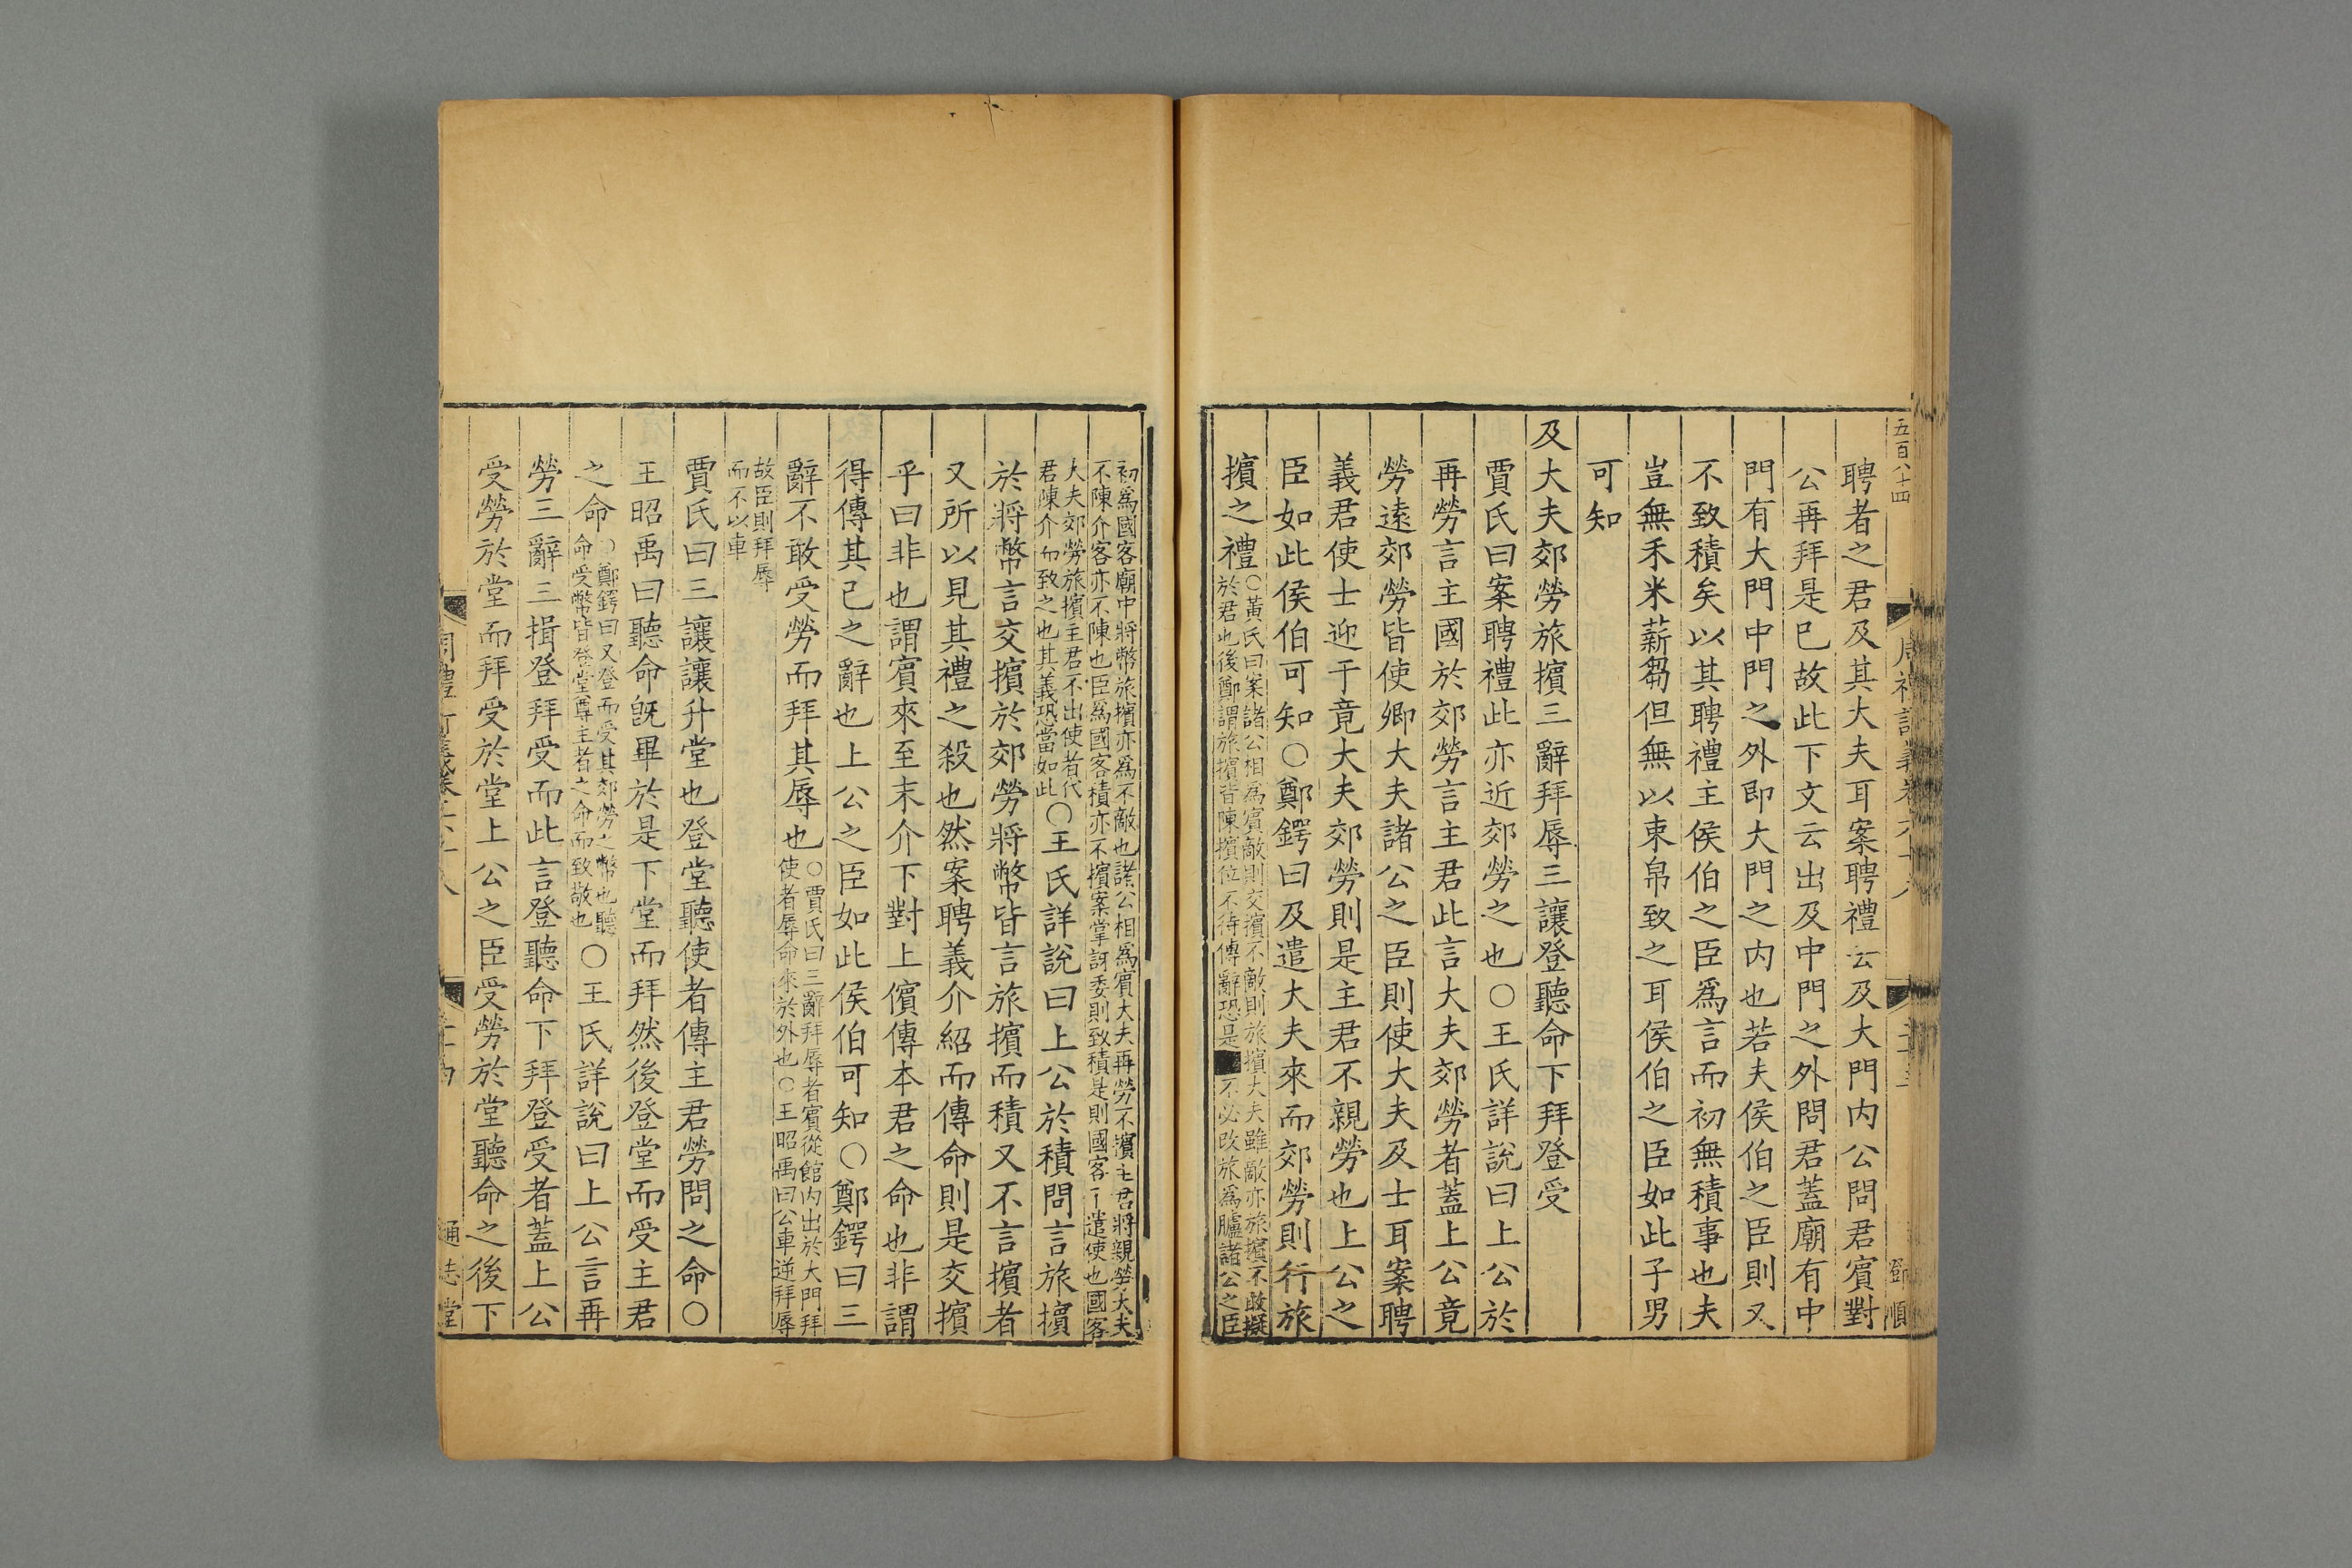 五百八十四
鄧順
聘者之君及其大夫耳案聘禮云及大門内公問君賓對
公再拜是巳故此下文云出及中門之外問君蓋廟有中
門有大門中門之外即大門之内也若夫侯伯之臣則又
不致積矣以其聘禮主侯伯之臣爲言而初無積事也夫
豈無禾米薪芻但無以束帛致之耳侯伯之臣如此子男
可知
及大夫郊勞旅擯三辭拜辱三讓登聽命下拜登受
賈氏曰案聘禮此亦近郊勞之也○王氏詳說曰上公於
再勞言主國於郊勞言主君此言大夫郊勞者蓋上公竟
勞遠郊勞皆使卿大夫諸公之臣則使大夫及士耳案聘
義君使士迎于竟大夫郊勞則是主君不親勞也上公之
臣如此侯伯可知○鄭鍔曰及遣大夫來而郊勞則行旅
擯之禮○黄氏曰案諸公相爲賓敵則交擯不敵則旅擯大夫雖敵亦旅擯不敢擬
於君也後鄭謂旅擯皆陳擯位不待傳辭恐是不必改旅爲臚諸公之臣
初爲國客廟中將幣旅擯亦爲不敵也諸公相爲賓大夫再勞不擯主君將親勞大夫
不陳介客亦不陳也臣爲國客積亦不擯案掌訝委則致積是則國客遣使也國客
大夫郊勞旅擯主君不出使者代
君陳介而致之也其義恐當如此○王氏詳說曰上公於積問言旅擯
於將幣言交擯於郊勞將幣皆言旅擯而積又不言擯者
又所以見其禮之殺也然案聘義介紹而傳命則是交擯
乎曰非也謂賓來至末介下對上儐傳本君之命也非謂
得傳其已之辭也上公之臣如此侯伯可知○鄭鍔曰三
辭不敢受勞而拜其辱也○賈氏曰三辭拜辱者賓從館内出於大門拜
使者辱命來於外也○王昭禹曰公車逆拜辱
故臣則拜辱
而不以車
賈氏曰三讓讓升堂也登堂聽使者傳主君勞問之命○
王昭禹曰聽命旣畢於是下堂而拜然後登堂而受主君
之命○鄭鍔曰又登而受其郊勞之幣也聽
命受幣皆登堂尊主者之命而致敬也○王氏詳說曰上公言再
勞三辭三揖登拜受而此言登聽命下拜登受者蓋上公
受勞於堂而拜受於堂上公之臣受勞於堂聽命之後下
通志堂